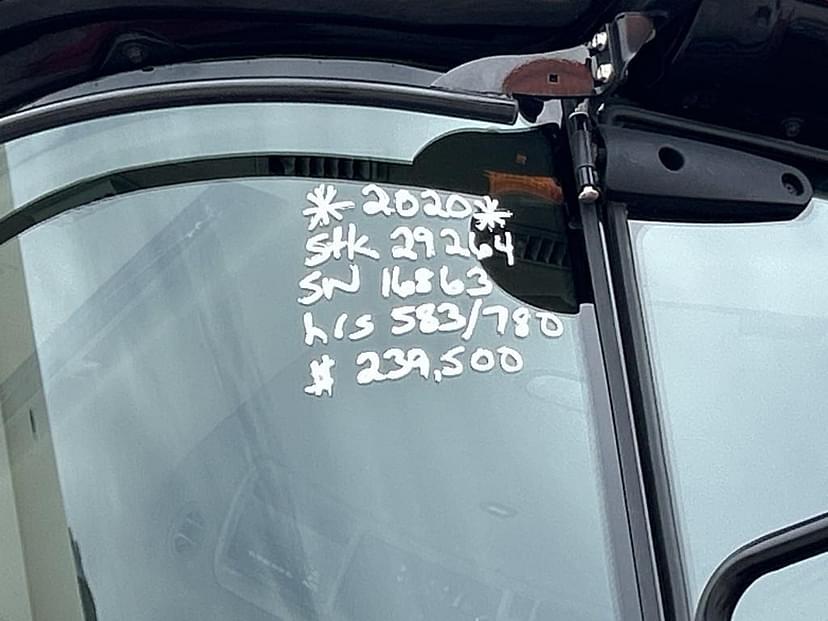 * 2020 *
Stk 29264
SN 16863
hrs 583/780
$ 239,500